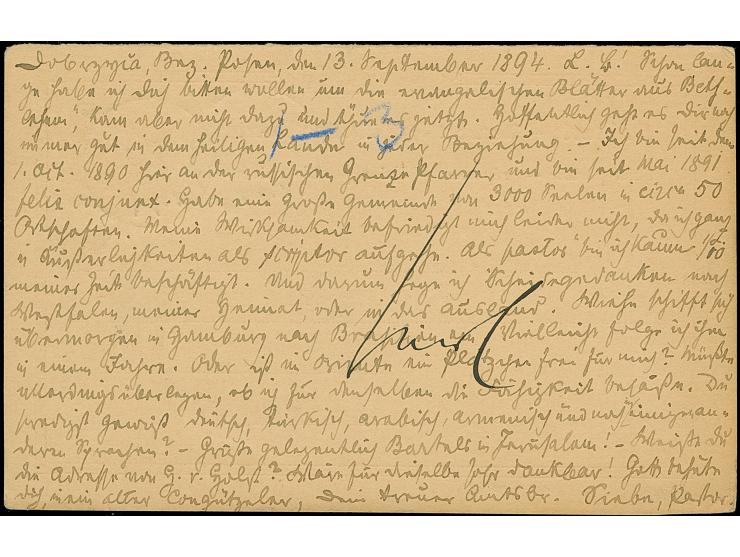 Dobrzyca, Bez. Posen, den 13. September 1894. L. B.! Schon lan-
ge habe ich Dich bitten wollen um die evangelischen Blätter aus Beth-
lehem", kam aber nicht dazu und thue es jetzt. Hoffentlich geht es Dir noch
immer gut in dem heiligen Lande in jeder Beziehung. – Ich bin seit dem
1. Oct. 1890 hier an der russischen Grenze Pfarrer und bin seit Mai 1891
felix conjunx. Habe eine große Gemeinde von 3000 Seelen in circa 50
Ortschaften. Meine Wirksamkeit befriedigt mich leider nicht, da ich ganz
in Äußerlichkeiten als scriptor aufgehe. Als pastor bin ich kaum 1/10
meiner Zeit beschäftigt. Und darum hege ich Scheidegedanken nach
Westfalen, meiner Heimat, oder in das Ausland. Wiehn schifft sich
übermorgen in Hamburg nach Brasilien ein. Vielleicht folge ich ihm
in einem Jahre. Oder ist im Oriente ein Plätzchen frei für mich? Müßte
allerdings überlegen, ob ich für denselben die Fähigkeit besäße. Du
predigst gewiß deutsch, türkisch, arabisch, armenisch und noch einigen an-
deren Sprachen? – Grüße gelegentlich Bartels in Jerusalem! – Weißt Du
die Adresse von H. v. Holst? Wäre für dieselbe sehr dankbar! Gott behüte
Dich, mein alter Dein treuer Amtsbr. Siebe, Pastor.
1–3